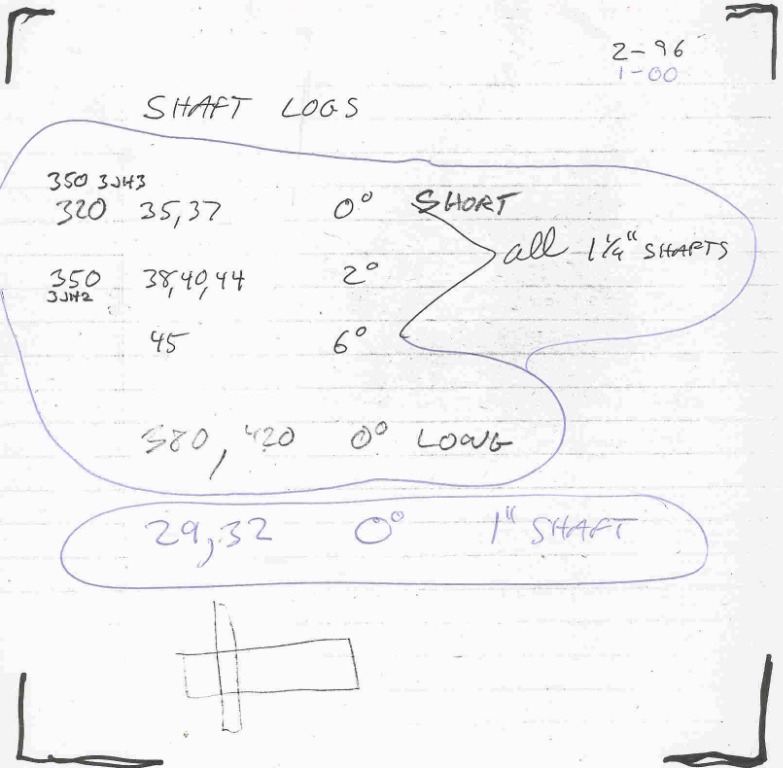 2-96
1-00
SHAFT LOGS
350 3JH3
320 35,37 0° SHORT
all 1 1/4" SHAFTS
350 38,40,44 2°
3JH2
45 6°
380, 420 0° LONG
29,32 0° 1" SHAFT